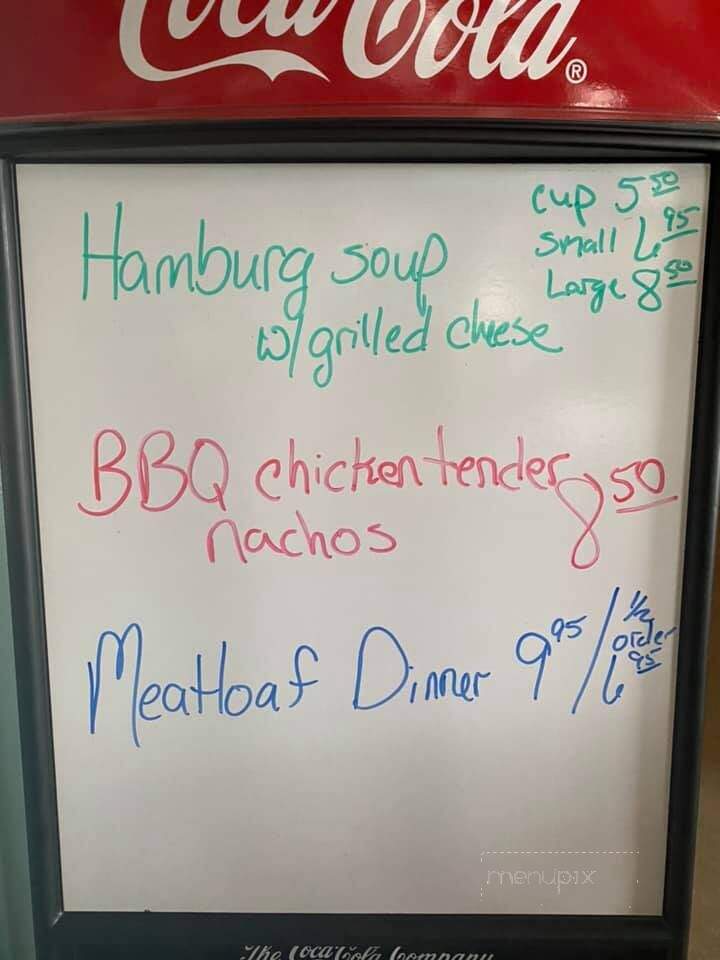 Coca-Cola®
Hamburg soup
cup 5 50
small 6 95
Large 8 50
w/grilled cheese
BBQ chicken tender 8 50
nachos
Meatloaf Dinner 9 95 / 1/2 order 6 95
menupix
The Coca-Cola Company